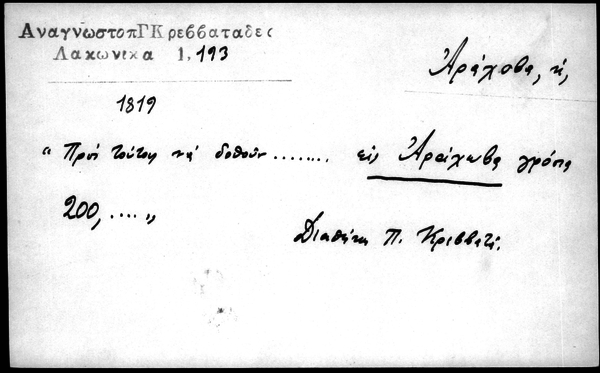 ΑναγνωστοπΓΚρεββαταδες
Λακωνικα 1, 193
Ἀράχοβα, ἡ,
1819
" Πρὸς τούτοις νὰ δοθοῦν ........ εἰς Ἀράχωβα γρόσια
200, .... "
Διαθήκη Π. Κρεββατᾶ.